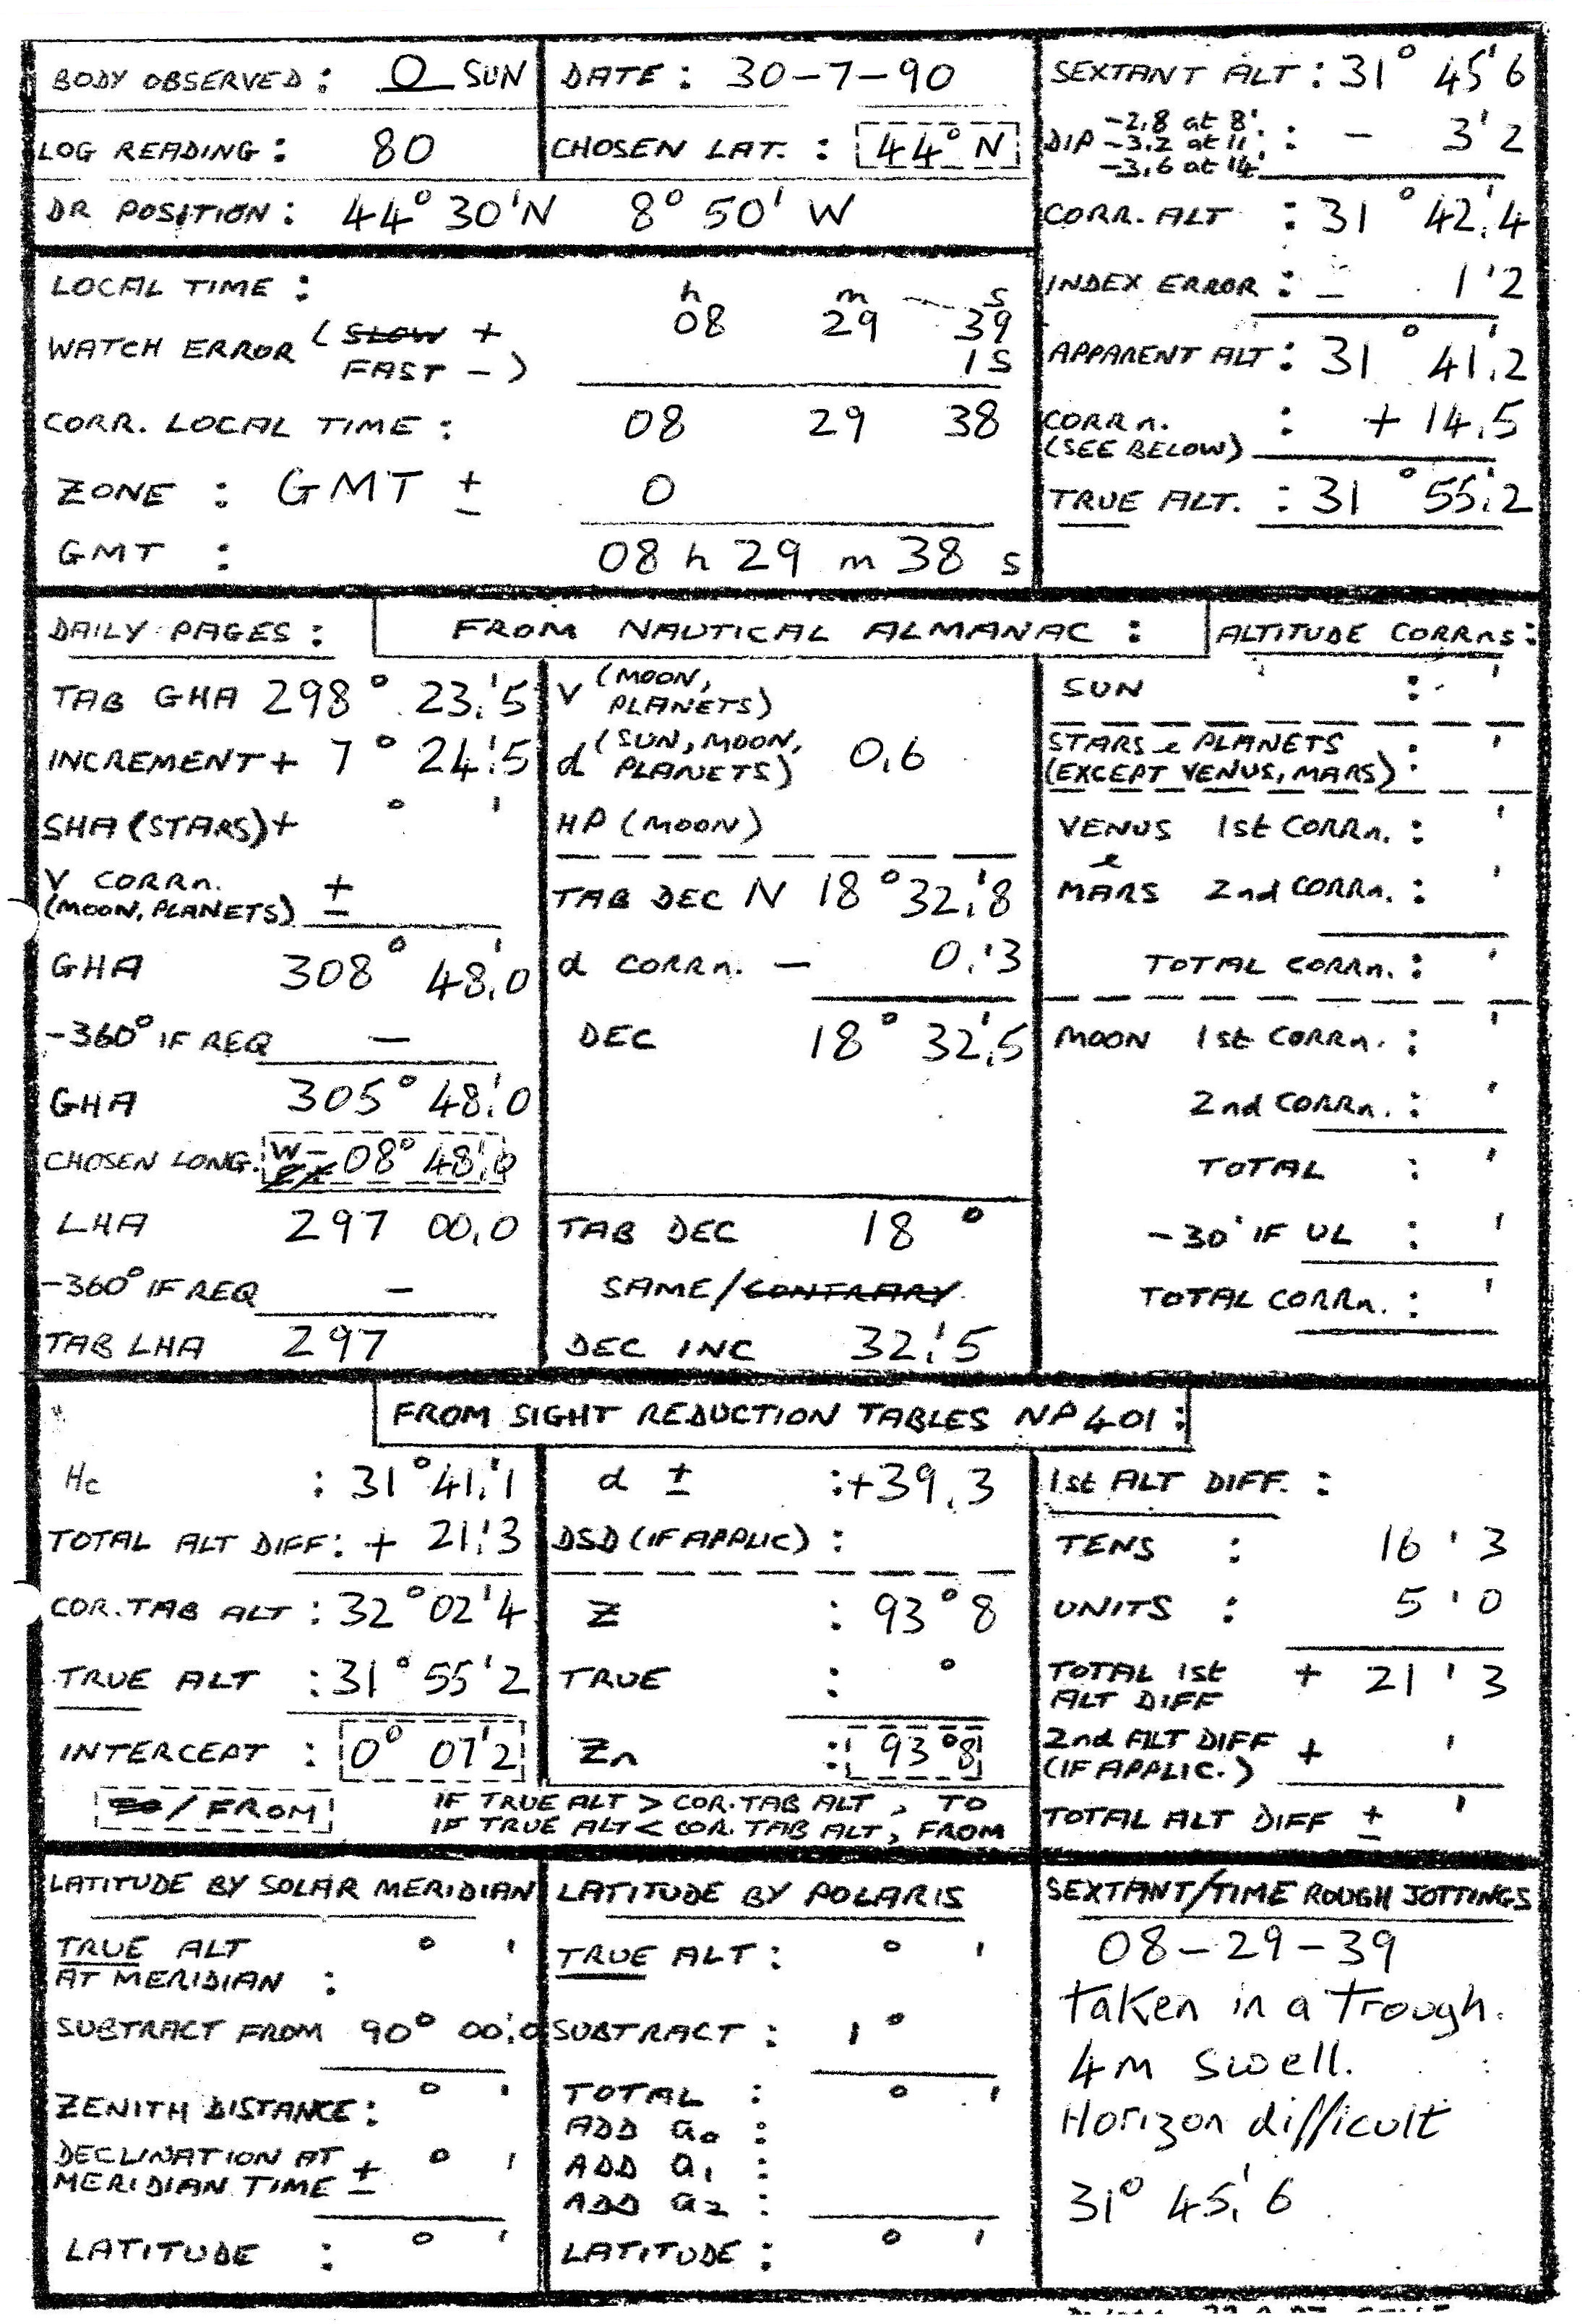 BODY OBSERVED : O SUN
DATE : 30-7-90
LOG READING : 80
CHOSEN LAT. : 44° N
DR POSITION : 44° 30'N 8° 50' W
SEXTANT ALT : 31° 45'6
DIP -2.8 at 8' -3.2 at 11' -3.6 at 14' : - 3'2
CORR. ALT : 31° 42'.4
INDEX ERROR : - 1'2
APPARENT ALT : 31° 41'.2
CORRn. (SEE BELOW) : + 14.5
TRUE ALT. : 31° 55'.2
LOCAL TIME :
h m s
08 29 39
WATCH ERROR (SLOW + FAST -) 1S
CORR. LOCAL TIME : 08 29 38
ZONE : GMT ± 0
GMT : 08 h 29 m 38 s
DAILY PAGES :
FROM NAUTICAL ALMANAC :
ALTITUDE CORRns :
TAB GHA 298° 23.'5
INCREMENT + 7° 24.'5
SHA (STARS) + ° '
V CORRn. (MOON, PLANETS) ±
GHA 308° 48.'0
-360° IF REQ —
GHA 305° 48.'0
CHOSEN LONG. W- E+ 08° 48.'0
LHA 297 00.0
-360° IF REQ -
TAB LHA 297
V (MOON, PLANETS)
d (SUN, MOON, PLANETS) 0.6
HP (MOON)
TAB DEC N 18° 32.'8
d CORRn. - 0.'3
DEC 18° 32.'5
TAB DEC 18°
SAME/CONTRARY
DEC INC 32.'5
SUN : '
STARS & PLANETS (EXCEPT VENUS, MARS) : '
VENUS 1st CORRn. : '
&
MARS 2nd CORRn. : '
TOTAL CORRn. : '
MOON 1st CORRn. : '
2nd CORRn. : '
TOTAL : '
-30' IF UL : '
TOTAL CORRn. : '
FROM SIGHT REDUCTION TABLES NP 401 :
Hc : 31° 41.'1
TOTAL ALT DIFF : + 21.'3
COR. TAB ALT : 32° 02'4
TRUE ALT : 31° 55'2
INTERCEPT : 0° 07'2
TO/FROM
d ± : +39.3
DSD (IF APPLIC) :
Z : 93°8
TRUE : °
Zn : 93°8
IF TRUE ALT > COR. TAB ALT, TO
IF TRUE ALT < COR. TAB ALT, FROM
1st ALT DIFF. :
TENS : 16'3
UNITS : 5'0
TOTAL 1st ALT DIFF + 21'3
2nd ALT DIFF (IF APPLIC.) + '
TOTAL ALT DIFF ± '
LATITUDE BY SOLAR MERIDIAN
TRUE ALT AT MERIDIAN : ° '
SUBTRACT FROM 90° 00.'0
ZENITH DISTANCE : ° '
DECLINATION AT MERIDIAN TIME ± ° '
LATITUDE : ° '
LATITUDE BY POLARIS
TRUE ALT : ° '
SUBTRACT : 1°
TOTAL : ° '
ADD a₀ :
ADD a₁ :
ADD a₂ :
LATITUDE : ° '
SEXTANT/TIME ROUGH JOTTINGS
08-29-39
taken in a trough.
4M swell.
Horizon difficult
31° 45.'6